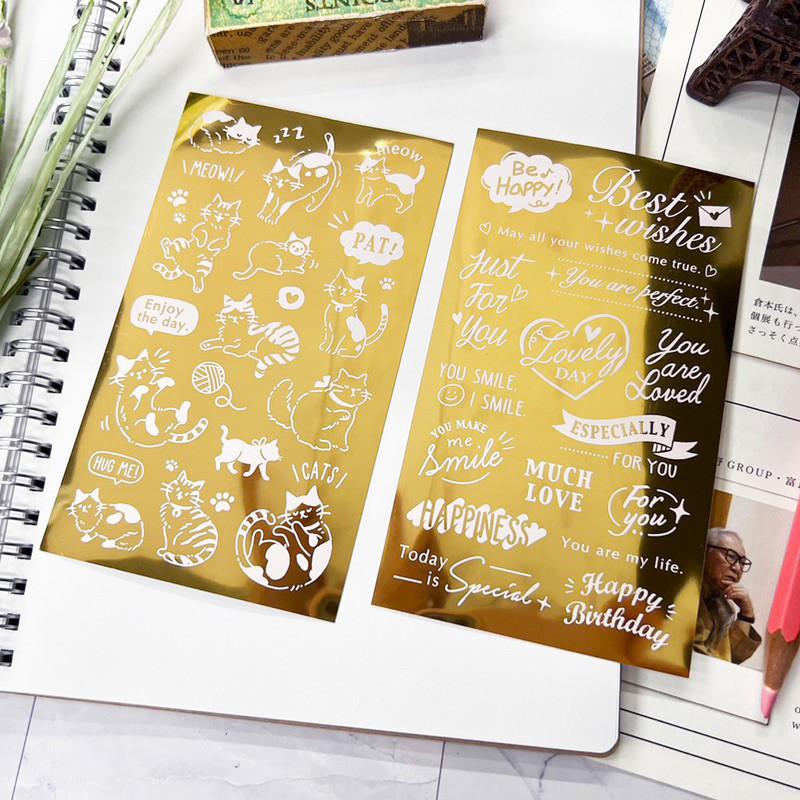 MEOW!
zzz
meow
PAT!
Enjoy
the day.
HUG ME!
CATS
Be
Happy!
Best
wishes
May all your wishes come true.
Just
For
You
You are perfect.
Lovely
DAY
You
are
Loved
YOU SMILE,
I SMILE.
YOU MAKE
me
Smile
ESPECIALLY
FOR YOU
MUCH
LOVE
For
you
HAPPINESS
You are my life.
Today
is Special
Happy
Birthday
倉本氏は、
個展も行っ
さっそく点
GROUP・富